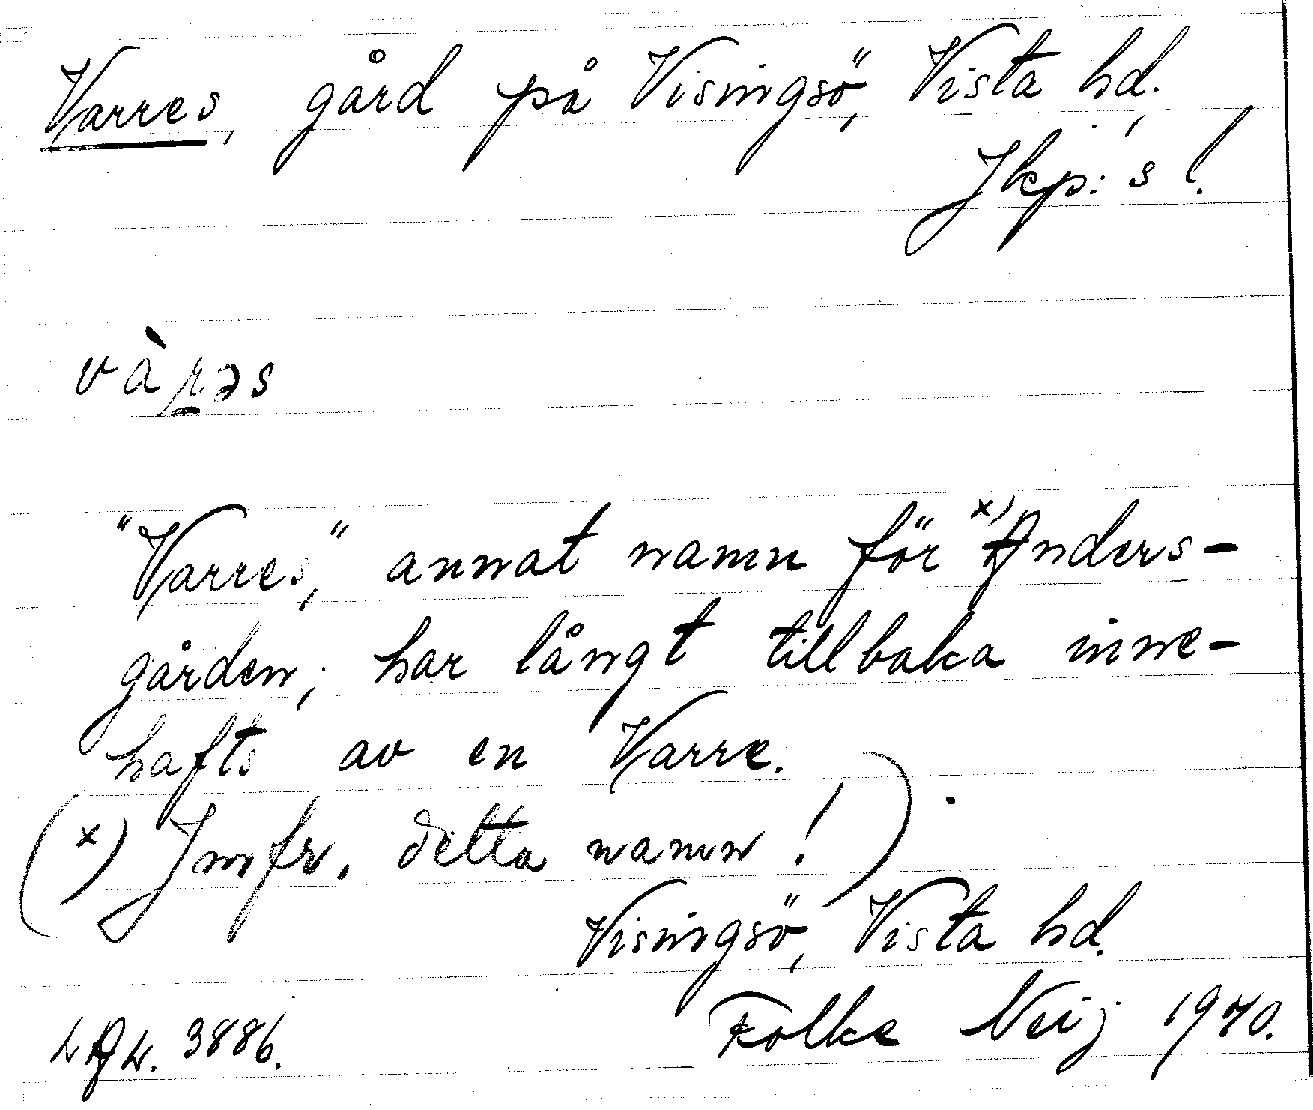 Varres, gård på Visingsö, Vista hd,
Jkp:s l.
vàrəs
"Varres," annat namn för x) Anders-
gården; har långt tillbaka inne-
hafts av en Varre.
(x) Jmfr. detta namn!)
Visingsö, Vista hd.
3886. Folke Neij 1940.